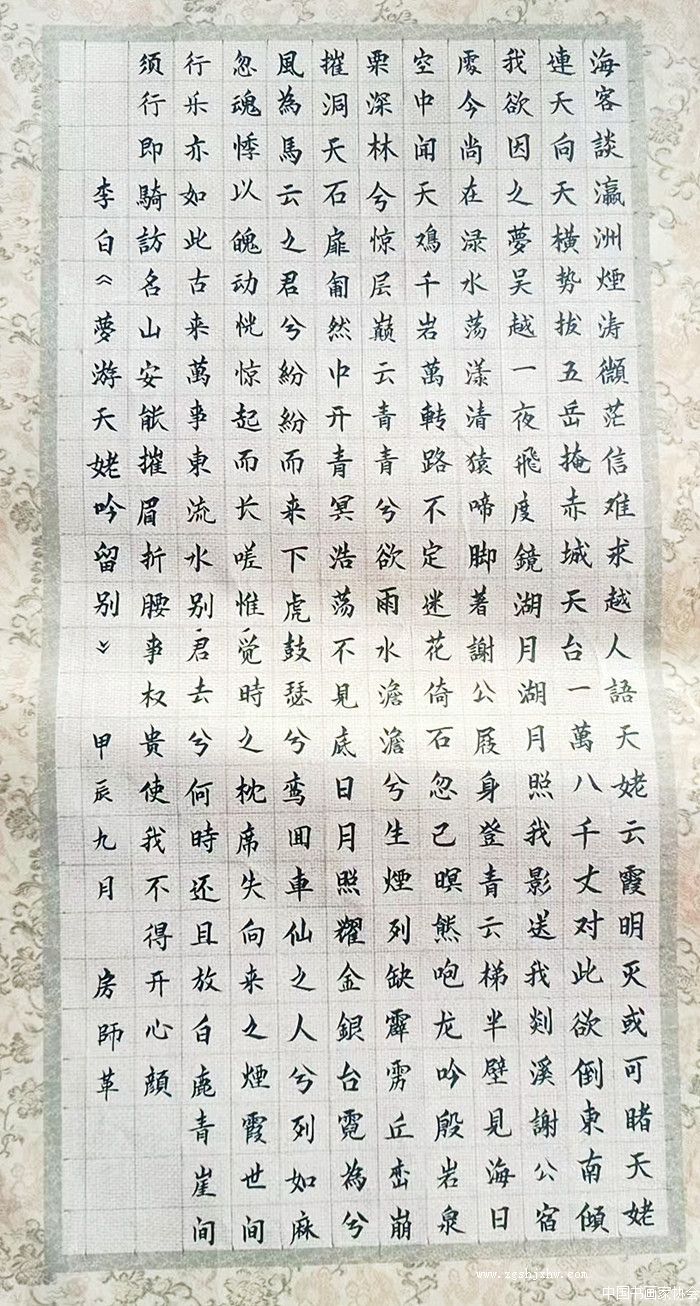 海客談瀛洲煙涛微茫信难求越人語天姥云霞明灭或可睹天姥
連天向天横势拔五岳掩赤城天台一萬八千丈对此欲倒東南傾
我欲因之夢吴越一夜飛度鏡湖月湖月照我影送我剡溪謝公宿
處今尚在渌水荡漾清猿啼脚著謝公屐身登青云梯半壁見海日
空中闻天鳮千岩萬轉路不定迷花倚石忽已暝熊咆龙吟殷岩泉
栗深林兮惊层巅云青青兮欲雨水澹澹兮生煙列缺霹雳丘峦崩
摧洞天石扉訇然中开青冥浩荡不見底日月照耀金銀台霓為兮
風為馬云之君兮紛紛而来下虎鼓瑟兮鸾囬車仙之人兮列如麻
忽魂悸以魄动恍惊起而长嗟惟觉時之枕席失向来之煙霞世间
行乐亦如此古来萬事東流水别君去兮何時还且放白鹿青崖间
须行即騎訪名山安能摧眉折腰事权贵使我不得开心顔
李白《夢游天姥吟留别》 甲辰九月 房師革
www.zgshjxhw.com
中国书画家协会